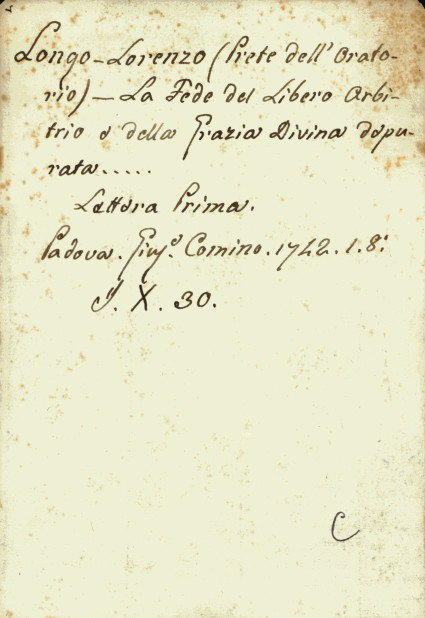 Longo-Lorenzo (Prete dell' Orato-
rio) — La Fede del Libero Arbi-
trio e della Grazia Divina depu-
rata.....
Lettera Prima.
Padova. Gius.e Comino. 1742. 1. 8.
J. X. 30.
C